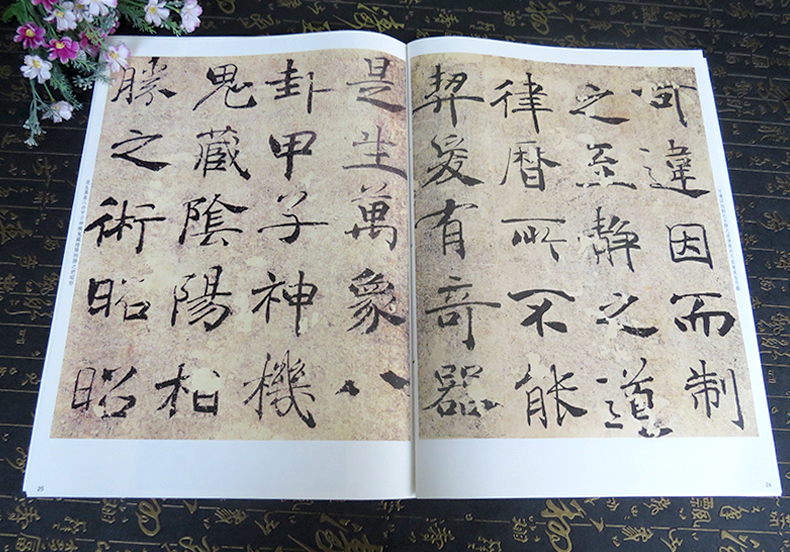 可違因而制
之至靜之道
律曆所不能
契爰有奇器
是生萬象八
卦甲子神機
鬼藏陰陽相
勝之術昭昭
25
24